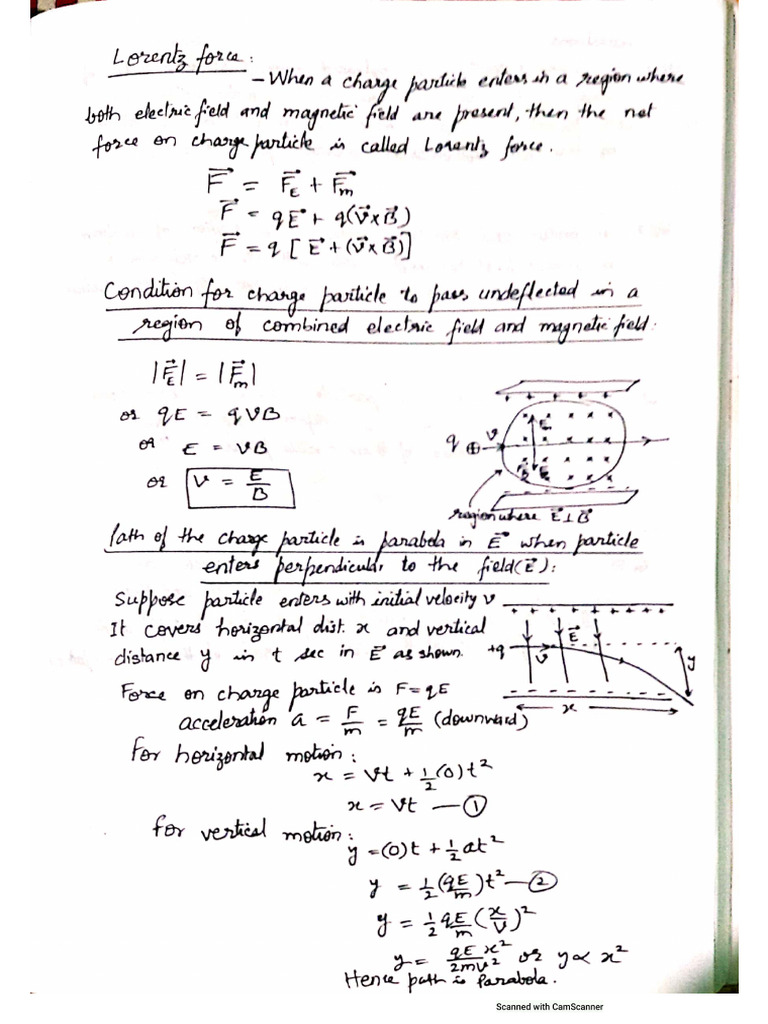 Lorentz force:
– When a charge particle enters in a region where
both electric field and magnetic field are present, then the net
force on charge particle is called Lorentz force.
F⃗ = F⃗_E + F⃗_m
F⃗ = qE⃗ + q(v⃗ × B⃗)
F⃗ = q [E⃗ + (v⃗ × B⃗)]
Condition for charge particle to pass undeflected in a
region of combined electric field and magnetic field:
|F⃗_E| = |F⃗_m|
or qE = qVB
or E = VB
or V = E/B
q ⊕ v
E
region where E⃗ ⊥ B⃗
Path of the charge particle is parabola in E⃗ when particle
enters perpendicular to the field (E⃗):
Suppose particle enters with initial velocity v
It covers horizontal dist. x and vertical
distance y in t sec in E⃗ as shown.
+q v E⃗ y
x
Force on charge particle is F = qE
acceleration a = F/m = qE/m (downward)
For horizontal motion:
x = vt + 1/2 (0)t²
x = vt — ①
for vertical motion:
y = (0)t + 1/2 at²
y = 1/2 (qE/m) t² — ②
y = 1/2 qE/m (x/v)²
y = qEx²/2mv² or y ∝ x²
Hence path is Parabola.
Scanned with CamScanner